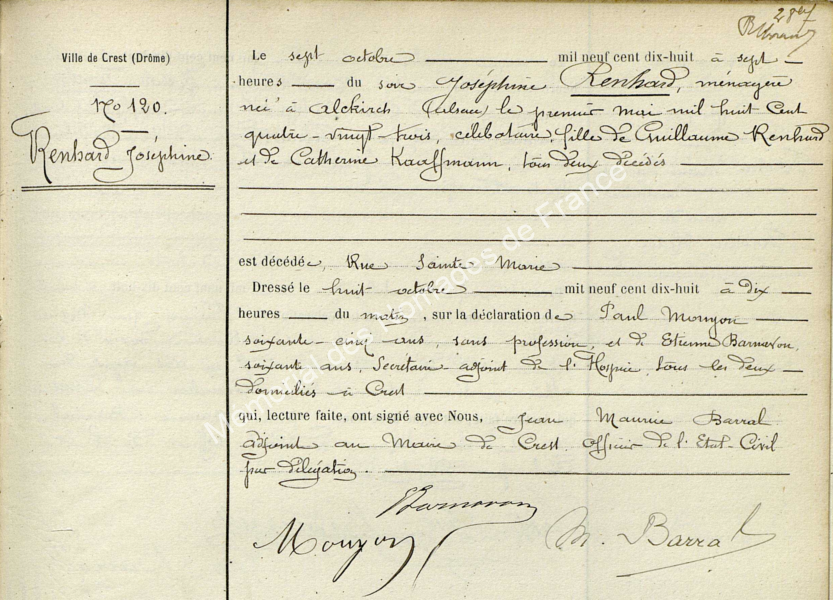 287
Ville de Crest (Drôme)
No 120.
Renhard Joséphine.
Le sept octobre mil neuf cent dix-huit à sept
heures du soir Joséphine Renhard, ménagère
née à Alckirch (Alsace) le premier mai mil huit cent
quatre-vingt-trois, célibataire, fille de Guillaume Renhard
et de Catherine Kaaffmann, tous deux décédés
est décédée, Rue Sainte Marie
Dressé le huit octobre mil neuf cent dix-huit à dix
heures du matin, sur la déclaration de Paul Mouyon
soixante-cinq ans, sans profession, et de Etienne Barnavon
soixante ans, Secrétaire adjoint de l'Hospice, tous les deux
domiciliés à Crest
qui, lecture faite, ont signé avec Nous, Jean Maurice Barral
adjoint au Maire de Crest, Officier de l'Etat-Civil
par délégation.
Barnavon
Mouyon
M. Barral
Mémorial des Otomages de France